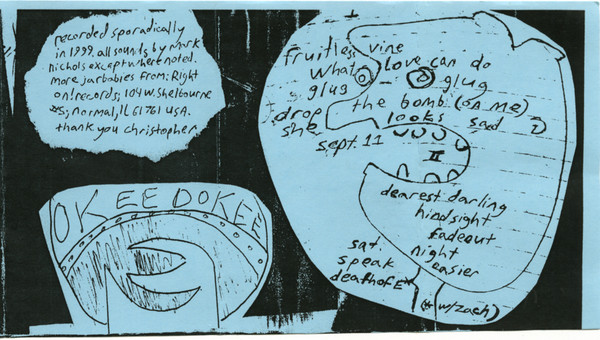 recorded sporadically
in 1999. all sounds by mark
nichols except where noted.
more jarbabies from: Right
on! records; 104 W. Shelbourne
#5; normal, il 61761 USA.
thank you christopher
OKEE DOKEE
fruitless vine
what love can do
glug glug
drop the bomb (on me)
she looks sad
sept. 11
II
dearest darling
hindsight
fadeout
night
easier
sat.
speak
death of E*
(* w/zach)